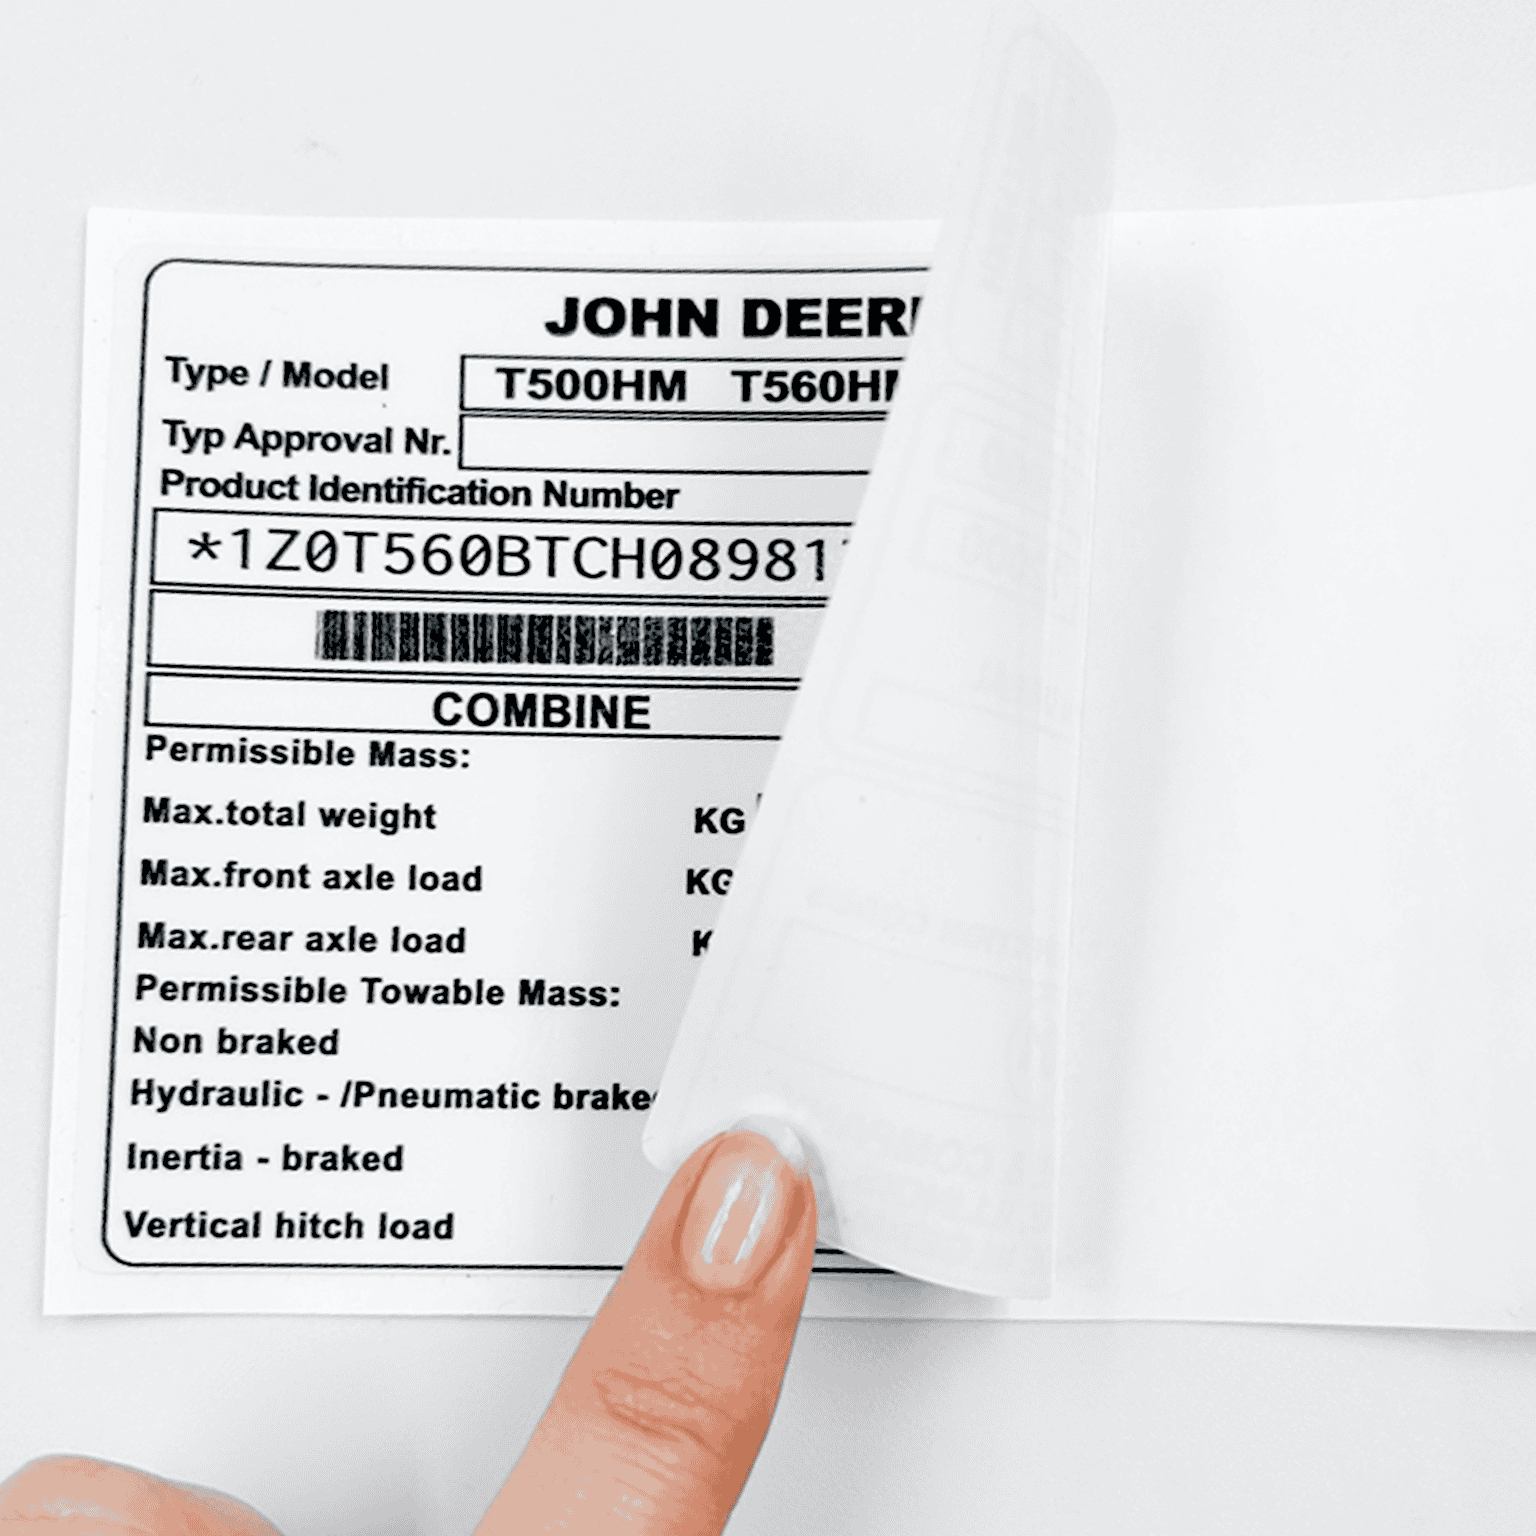 JOHN DEER
Type / Model T500HM T560H
Typ Approval Nr.
Product Identification Number
*1Z0T560BTCH08981
COMBINE
Permissible Mass:
Max.total weight KG
Max.front axle load KG
Max.rear axle load K
Permissible Towable Mass:
Non braked
Hydraulic - /Pneumatic brake
Inertia - braked
Vertical hitch load